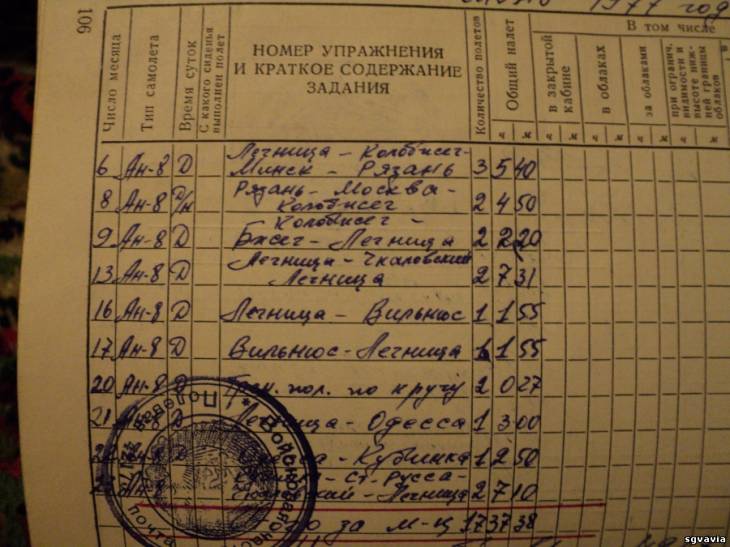 1977 год
106
Число месяца
Тип самолета
Время суток
С какого сиденья выполнен полет
НОМЕР УПРАЖНЕНИЯ
И КРАТКОЕ СОДЕРЖАНИЕ
ЗАДАНИЯ
Количество полетов
Общий налет
В том числе
в закрытой кабине
в облаках
за облаками
при огранич. видимости и высоте нижней границы облаков
Легница - Колобжег-
6 Ан-8 Д Минск - Рязань 3 5 40
Рязань - Москва -
8 Ан-8 Д/н Колобжег 2 4 50
Колобжег -
9 Ан-8 Д Бжег - Легница 2 2 20
Легница - Чкаловский
13 Ан-8 Д Легница 2 7 31
16 Ан-8 Д Легница - Вильнюс 1 1 55
17 Ан-8 Д Вильнюс - Легница 1 1 55
20 Ан-8 Д Трен. пол. по кругу 2 0 27
21 Ан-8 Д Легница - Одесса 1 3 00
Ан-8 Д Кубинка 1 2 50
Ст. Русса -
Легница 2 7 10
за м-ц 17 37 38
Войсковая
почта
sgvavia